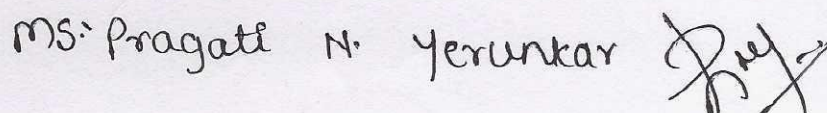 Ms. Pragati N. Yerunkar